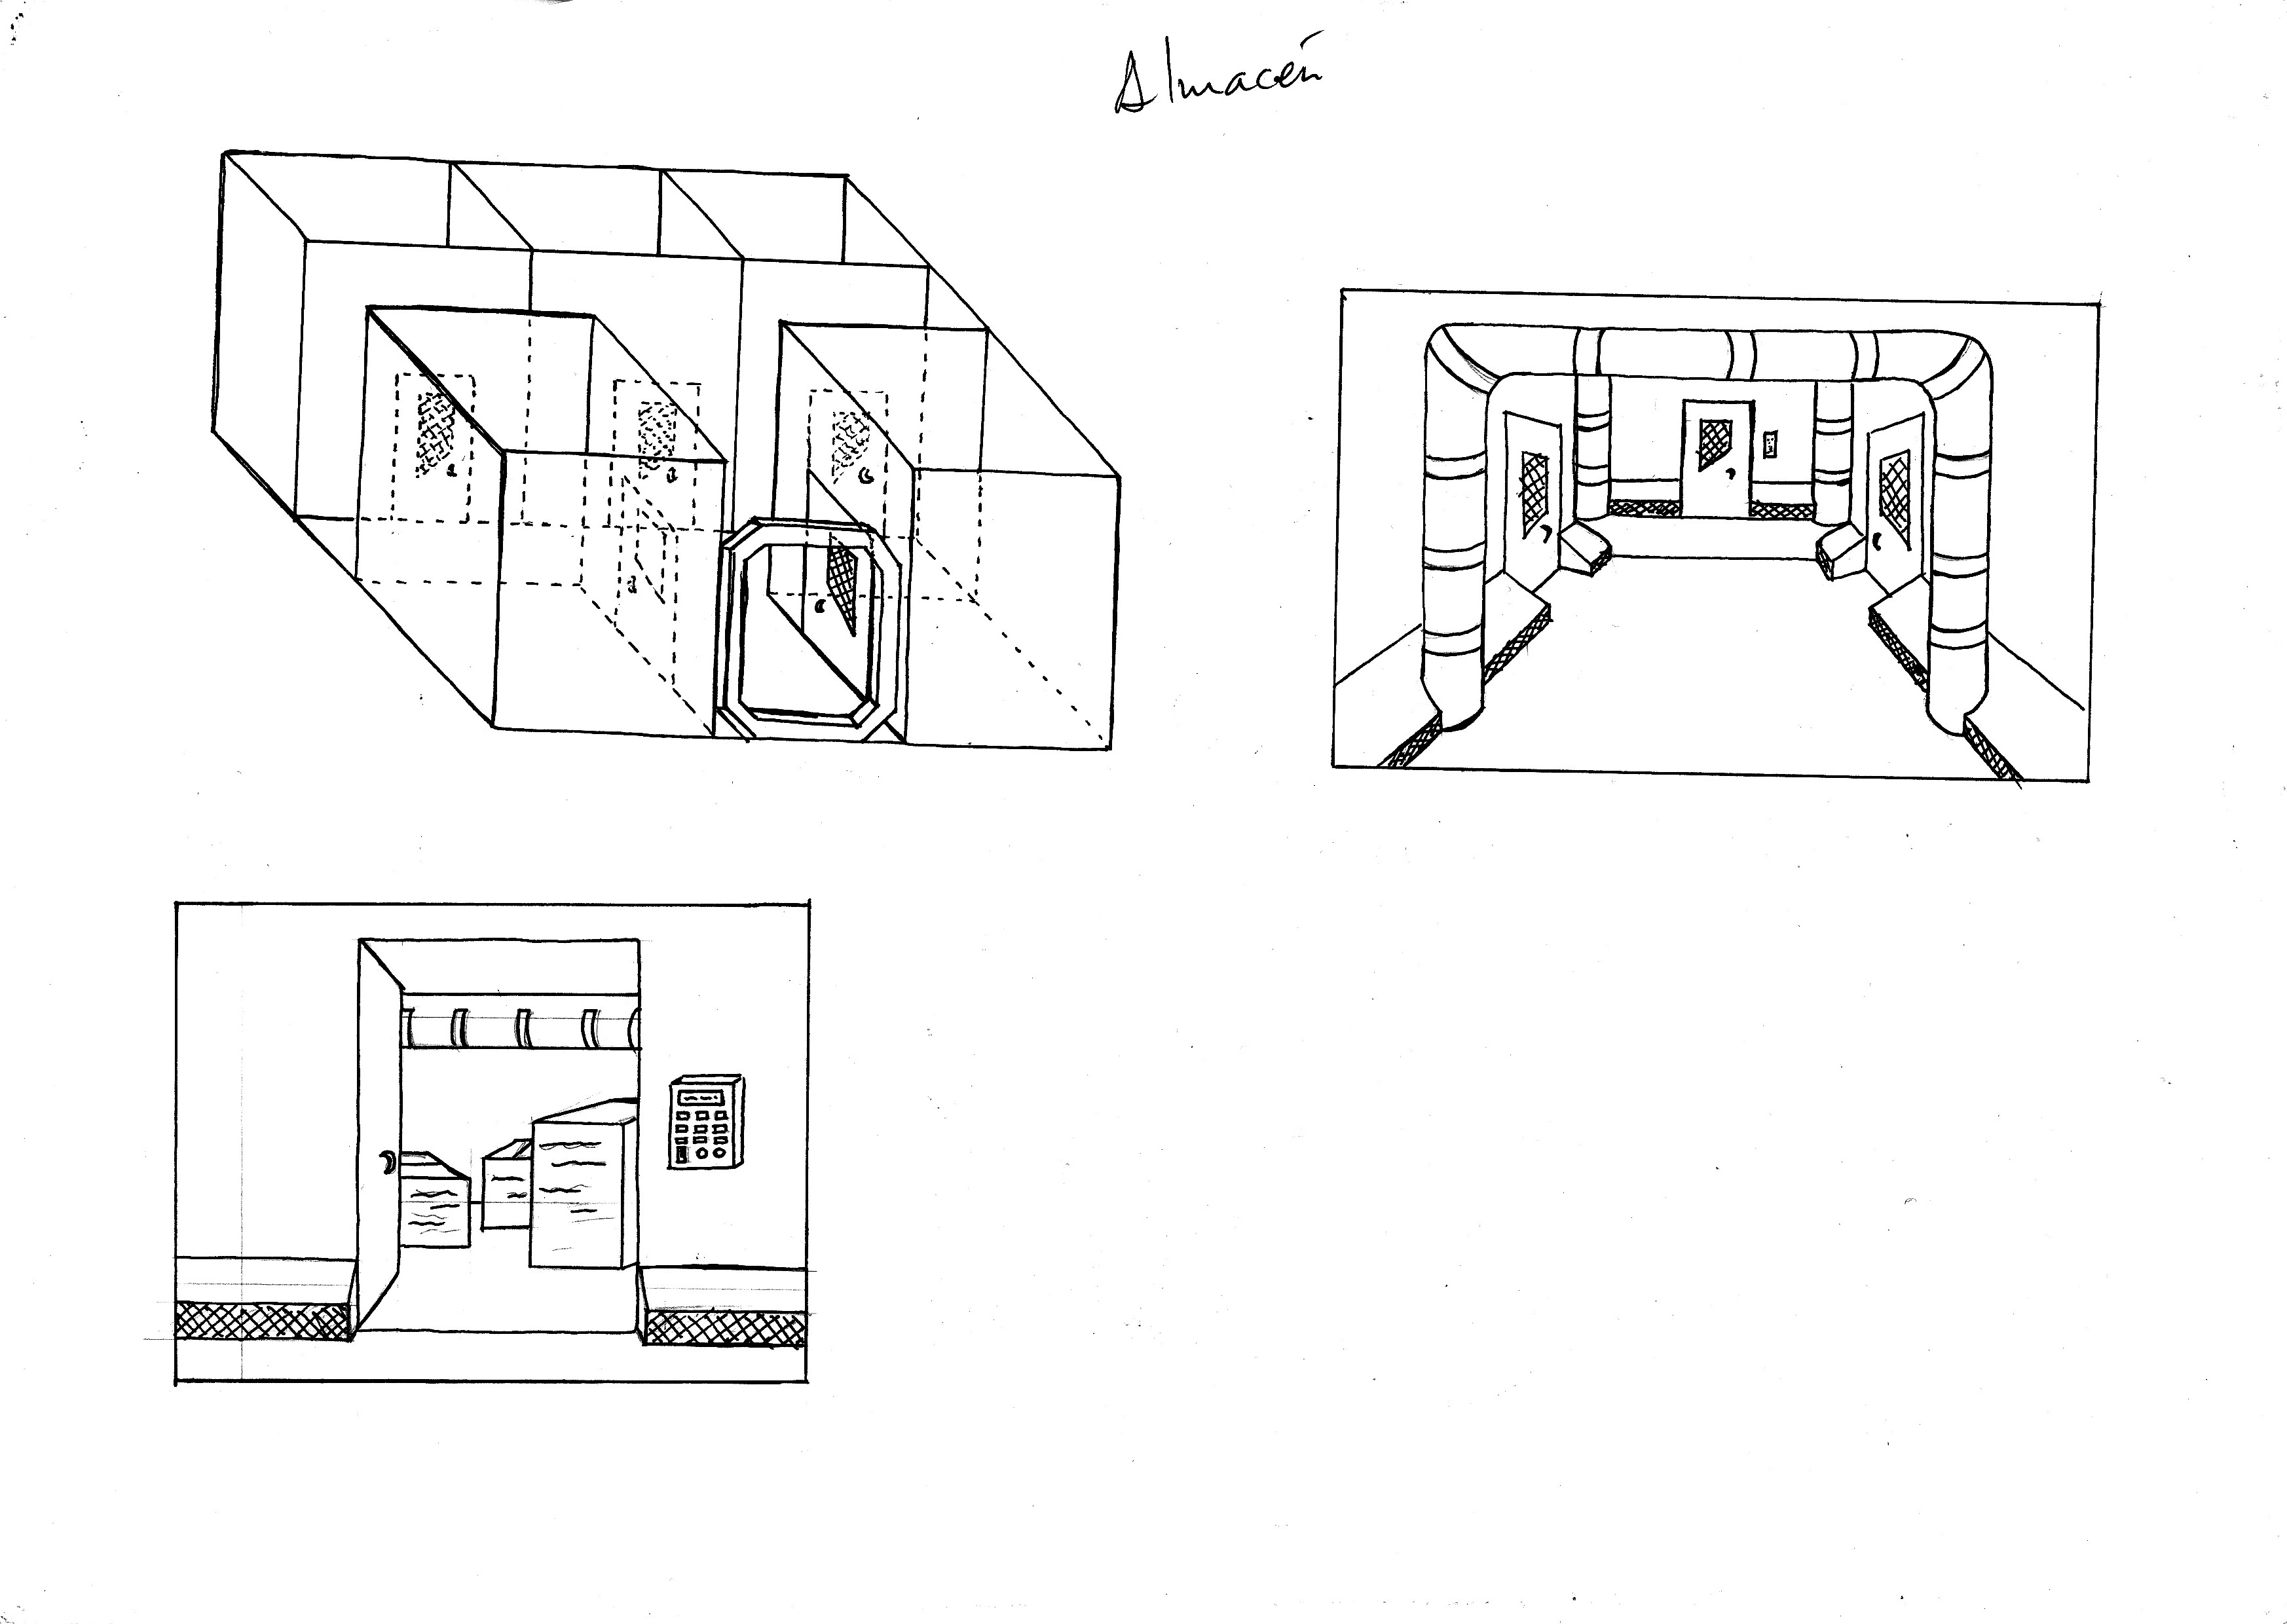 Almacén